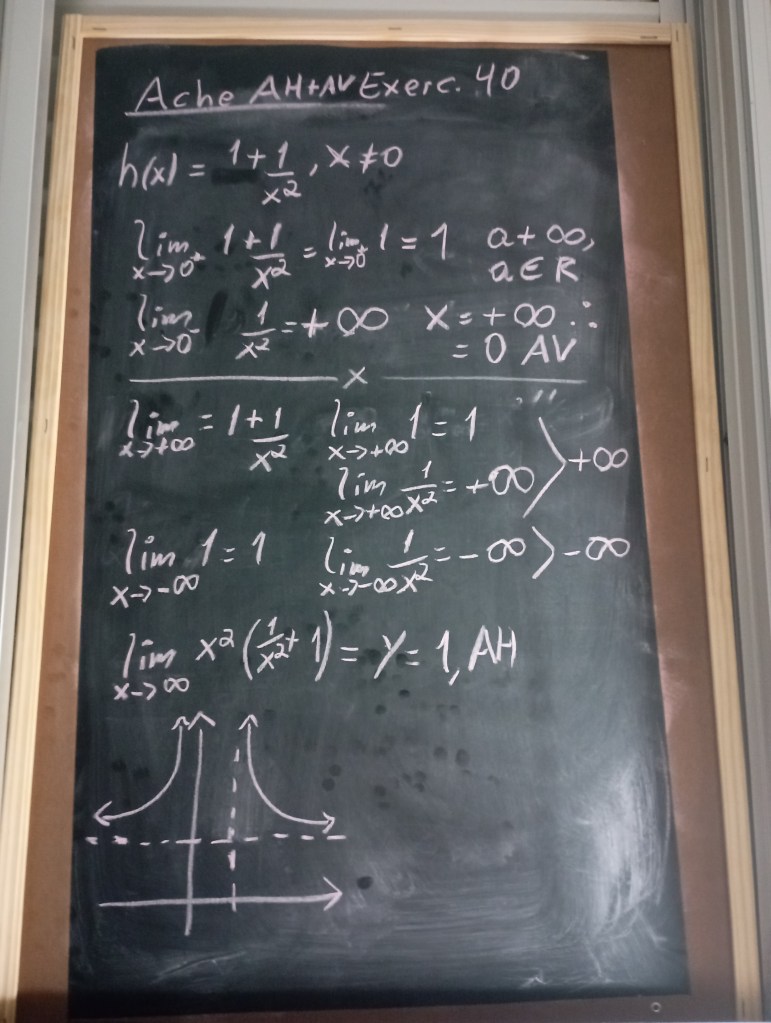 Ache AH+AV Exerc. 40
h(x) = 1 + 1/x², x ≠ 0
lim x→0⁺ 1 + 1/x² = lim x→0⁺ 1 = 1 a + ∞, a ∈ R
lim x→0⁻ 1/x² = + ∞ x = + ∞ ∴ = 0 AV
x
lim x→+∞ = 1 + 1/x² lim x→+∞ 1 = 1
lim x→+∞ 1/x² = +∞ > +∞
lim x→-∞ 1 = 1 lim x→-∞ 1/x² = - ∞ > - ∞
lim x→∞ x² (1/x² + 1) = y = 1, AH